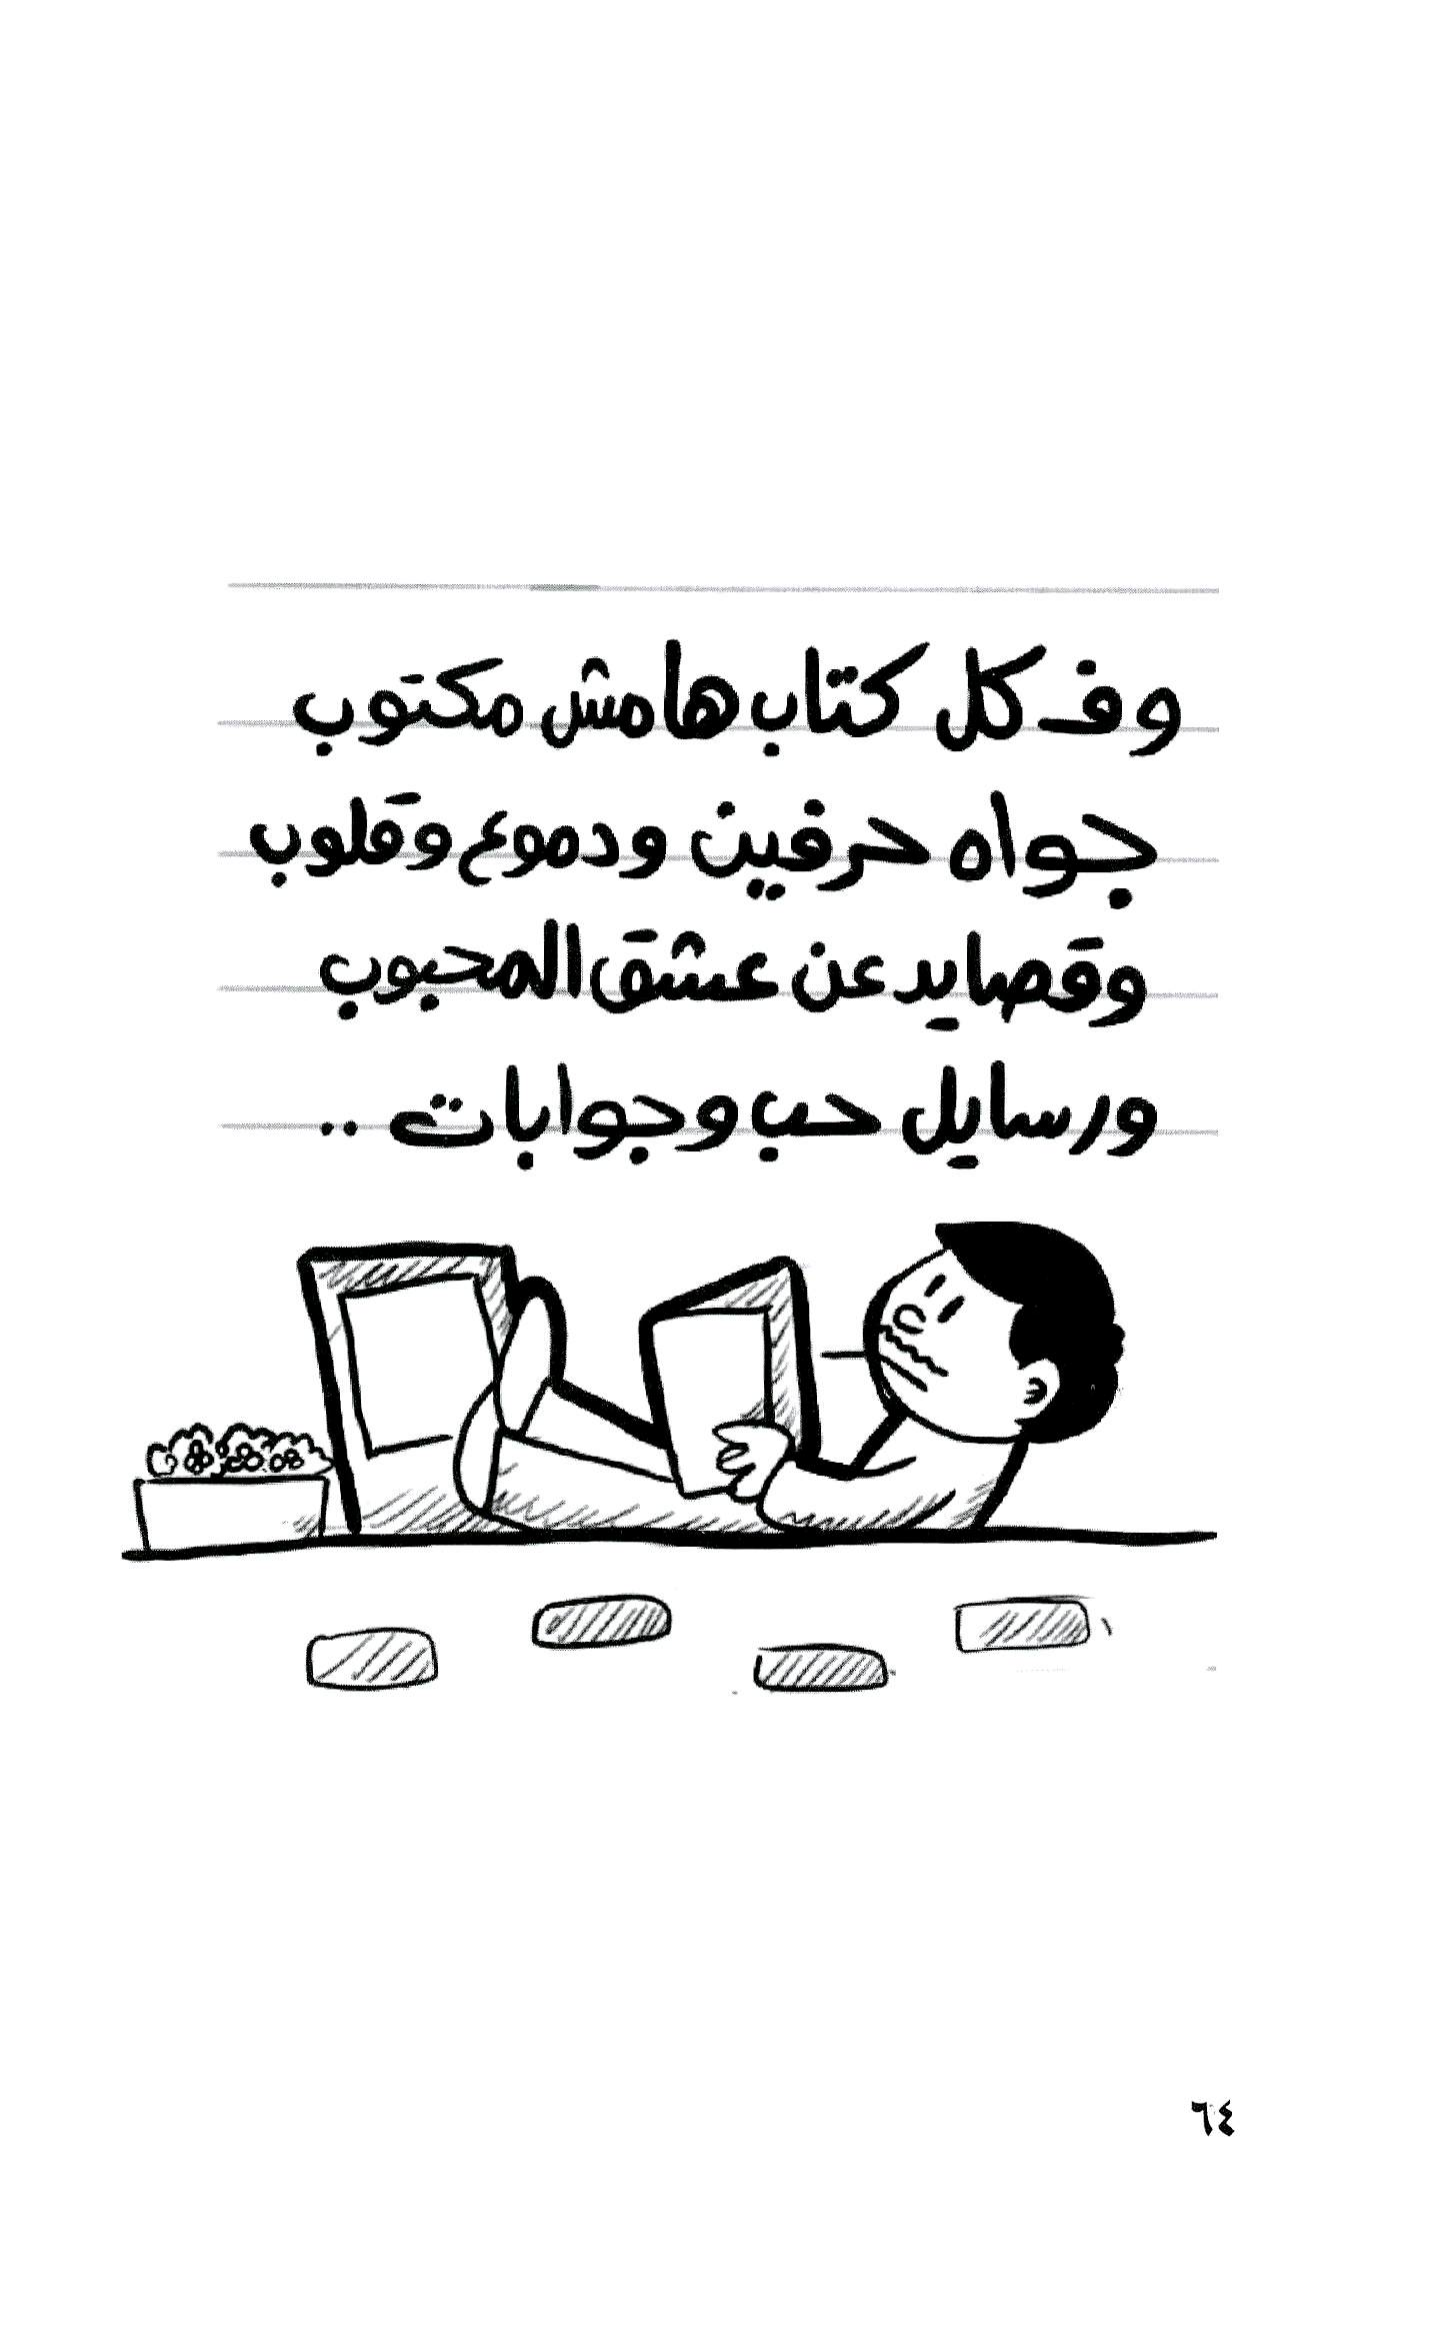 وف كل كتاب هامش مكتوب
جواه حرفين ودموع وقلوب
وقصايد عن عشق المحبوب
ورسايل حب وجوابات ..
٦٤